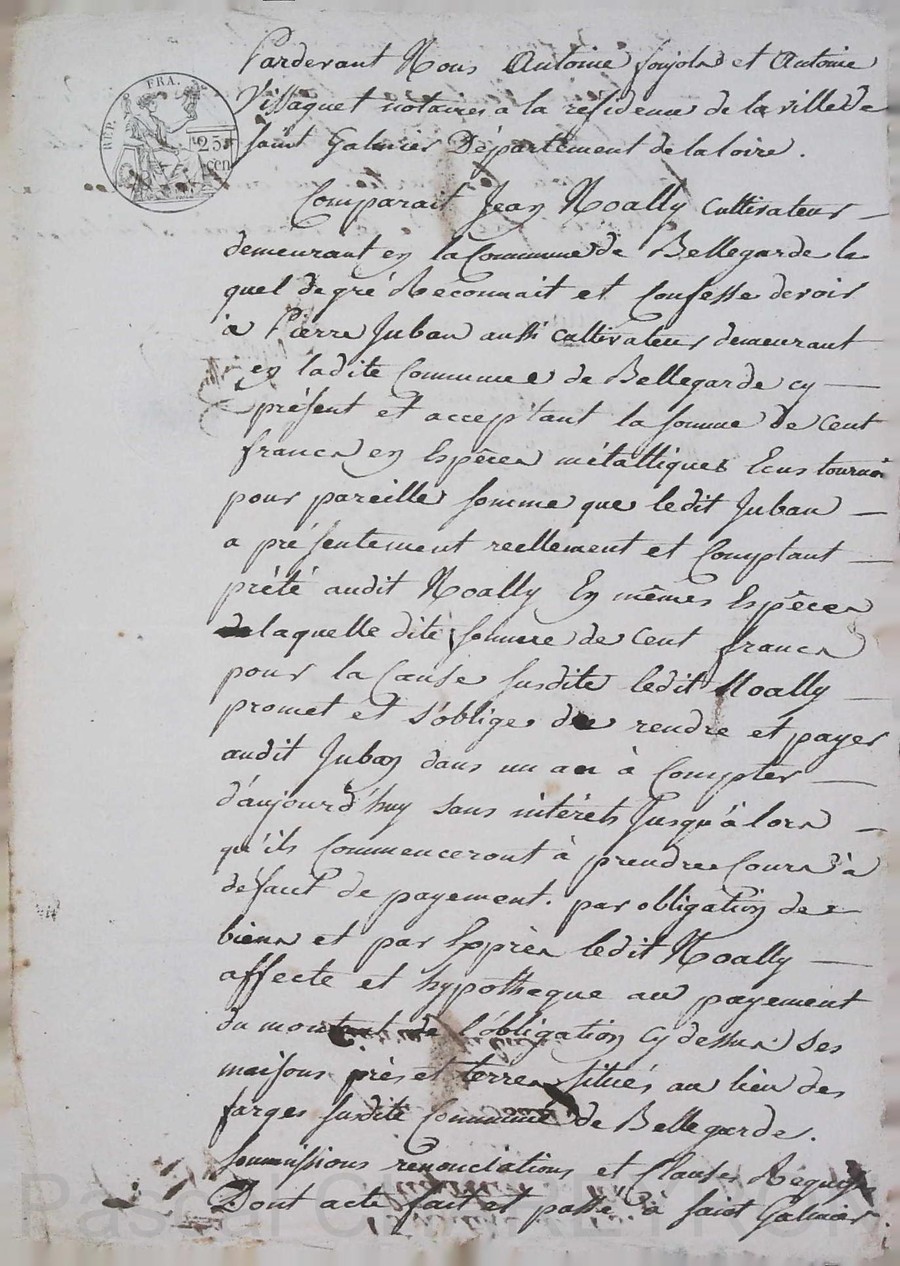 REP. FRA.
25
cen
Pardevant Nous Antoine foujols et Antoine
Villaquet notaires a la residence de la ville de
saint Galmier Département de la loire.
Comparait Jean Noally cultivateur
demeurant en la Commune de Bellegarde le
quel de gré Reconnait et Confesse devoir
a Pierre Juban aussi cultivateur demeurant
en ladite Commune de Bellegarde cy
présent et acceptant la somme de Cent
francs en Espèces métalliques Ecus tournois
pour pareille somme que ledit Juban
a présentement reellement et Comptant
prêté audit Noally En mêmes Espèces
laquelle dite somme de Cent francs
pour la Cause susdite ledit Noally
promet et s'oblige de rendre et payer
audit Juban dans un an à Compter
d'aujourd'huy sans intérêts Jusqu'à lors
qu'ils Commenceront à prendre Cours à
défaut de payement. par obligation de
biens et par Exprès ledit Noally
affecte et hypotheque au payement
du montant de l'obligation cy dessus ses
maisons près et terres situés au lieu des
farges susdite Commune de Bellegarde.
soumissions renonciations et Clauses Requises
Dont acte fait et passé à saint Galmier
Pascal